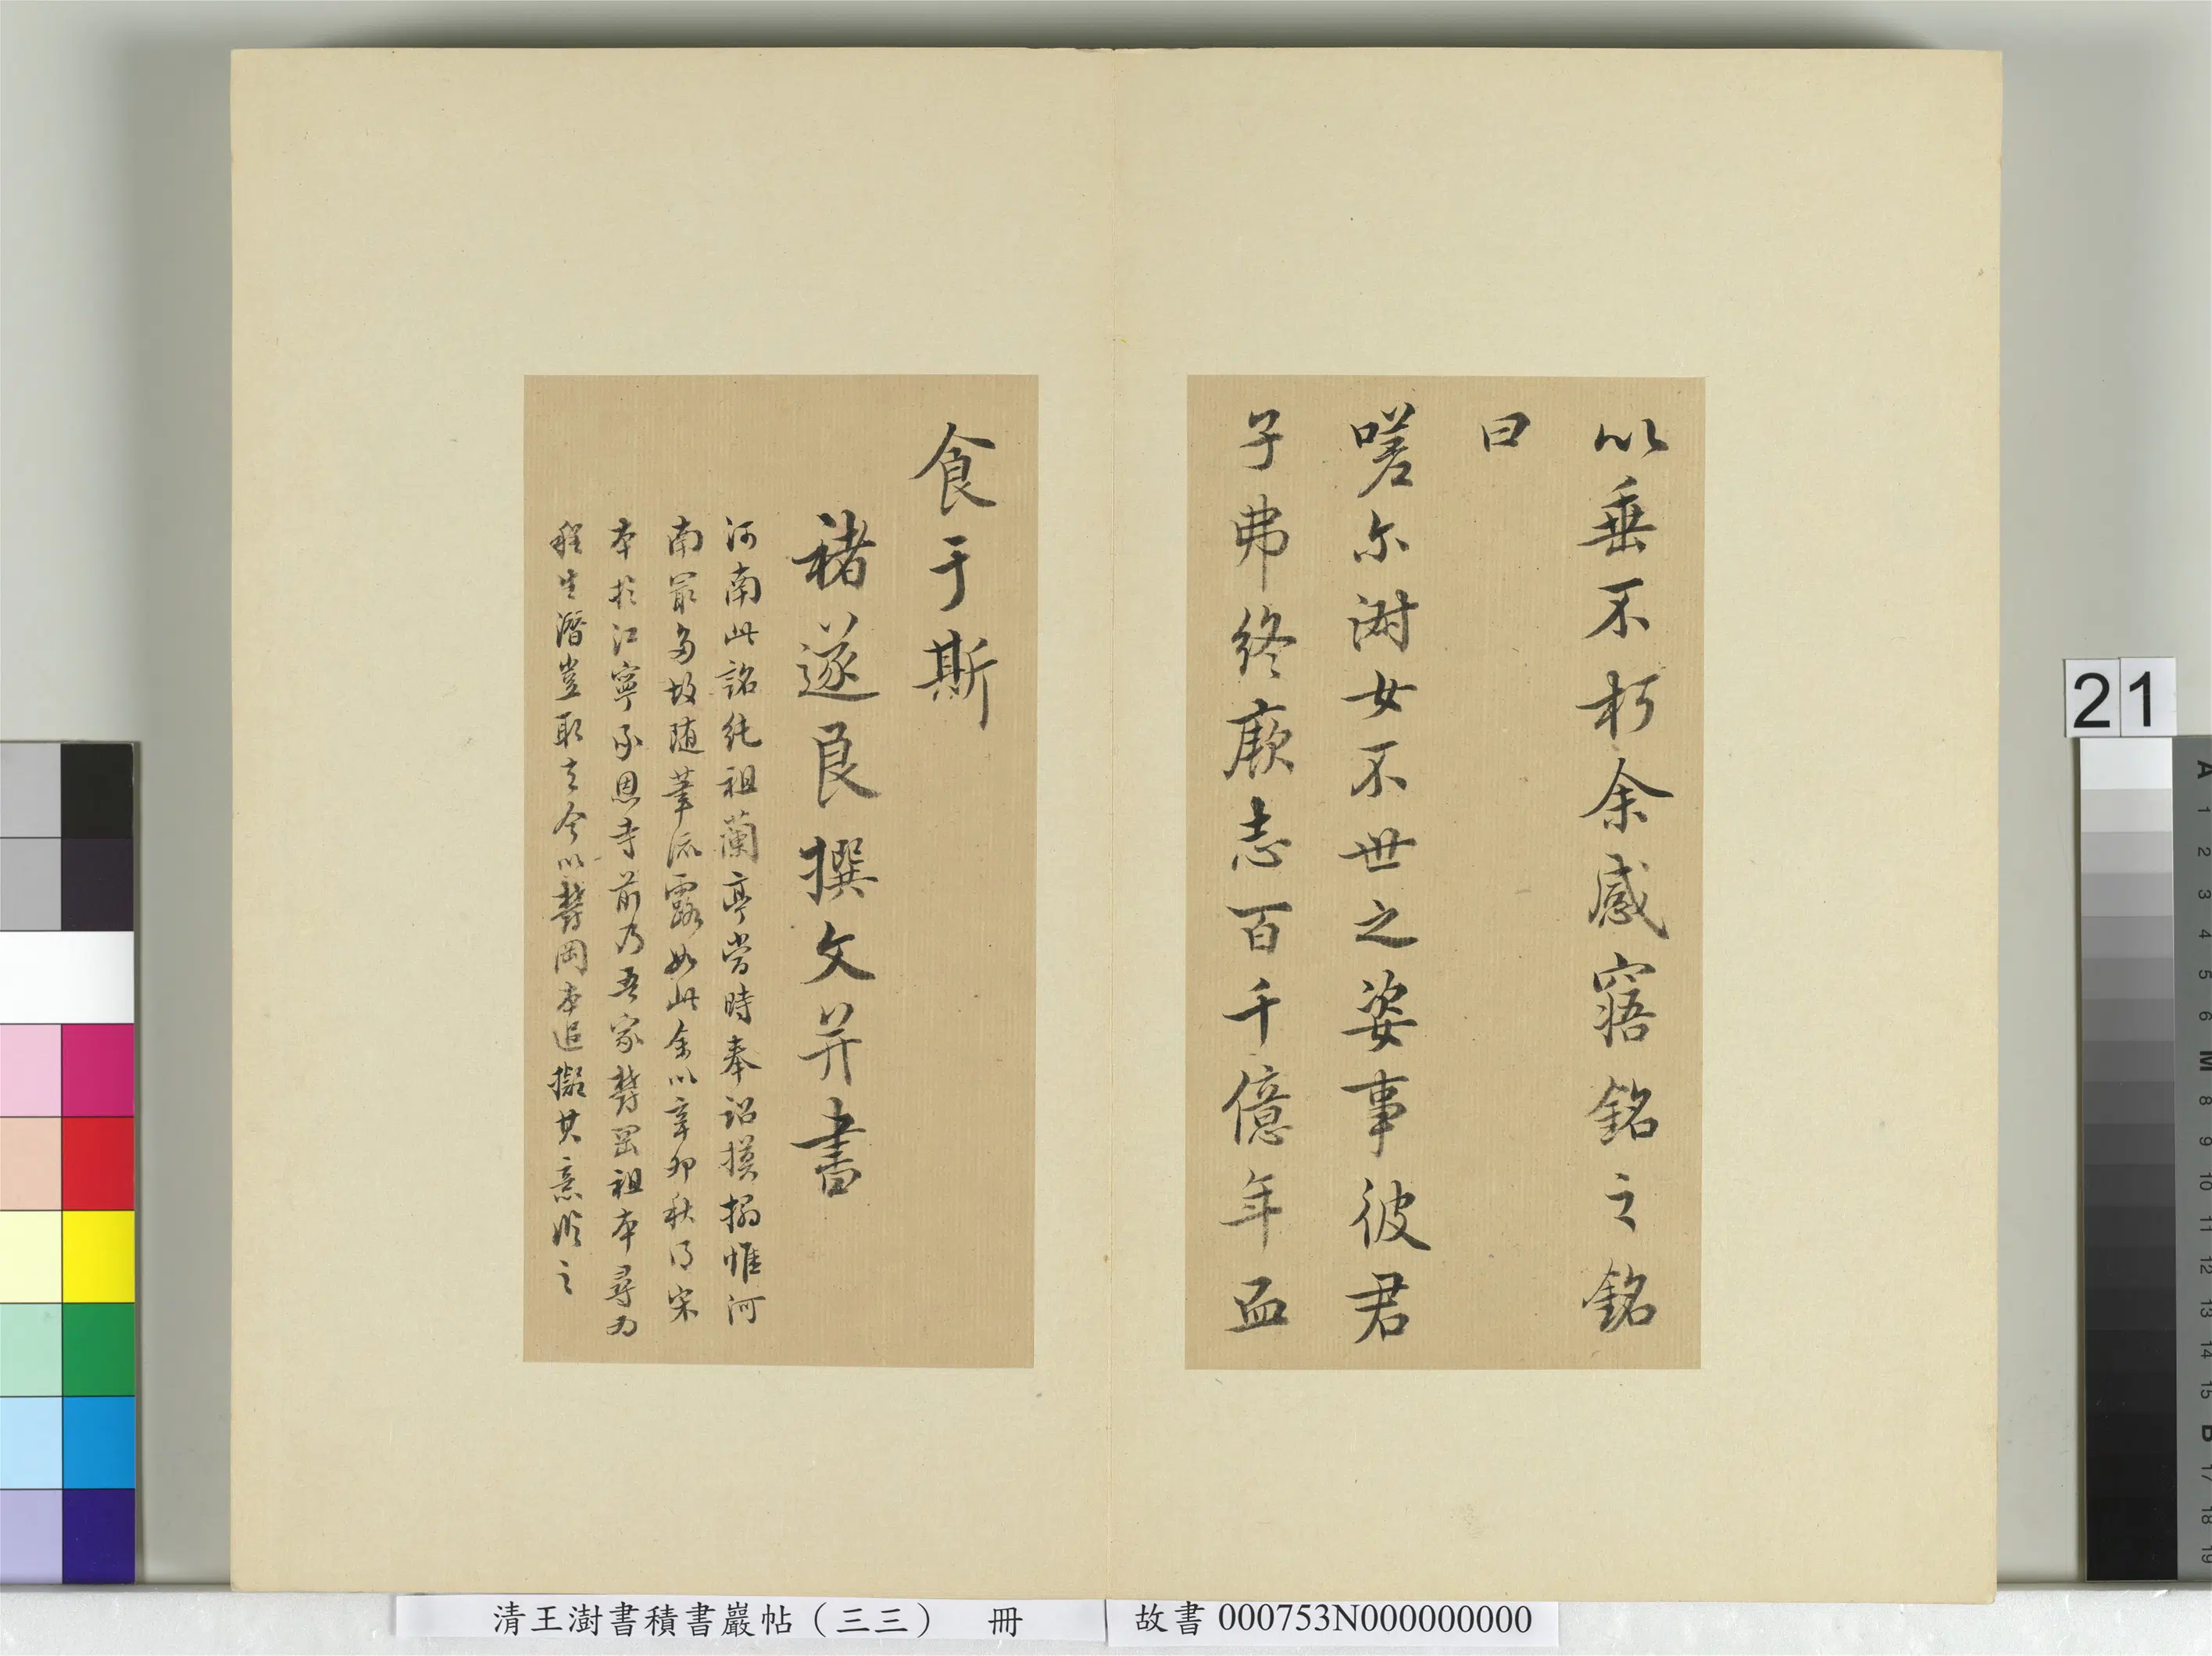 以垂不朽余感寤銘之銘
曰
嗟尔澍女不世之姿事彼君
子弗終厥志百千億年血
食于斯
褚遂良撰文并書
河南此銘純祖蘭亭當時奉詔摸搨惟河
南最多故随筆流露如此余以辛卯秋得宋
本於江寧承恩寺前乃吾家鬱岡祖本尋為
程生潛豈取去今以鬱岡本追擬其意臨之
清王澍書積書巖帖（三三） 冊
故書 000753N000000000
21